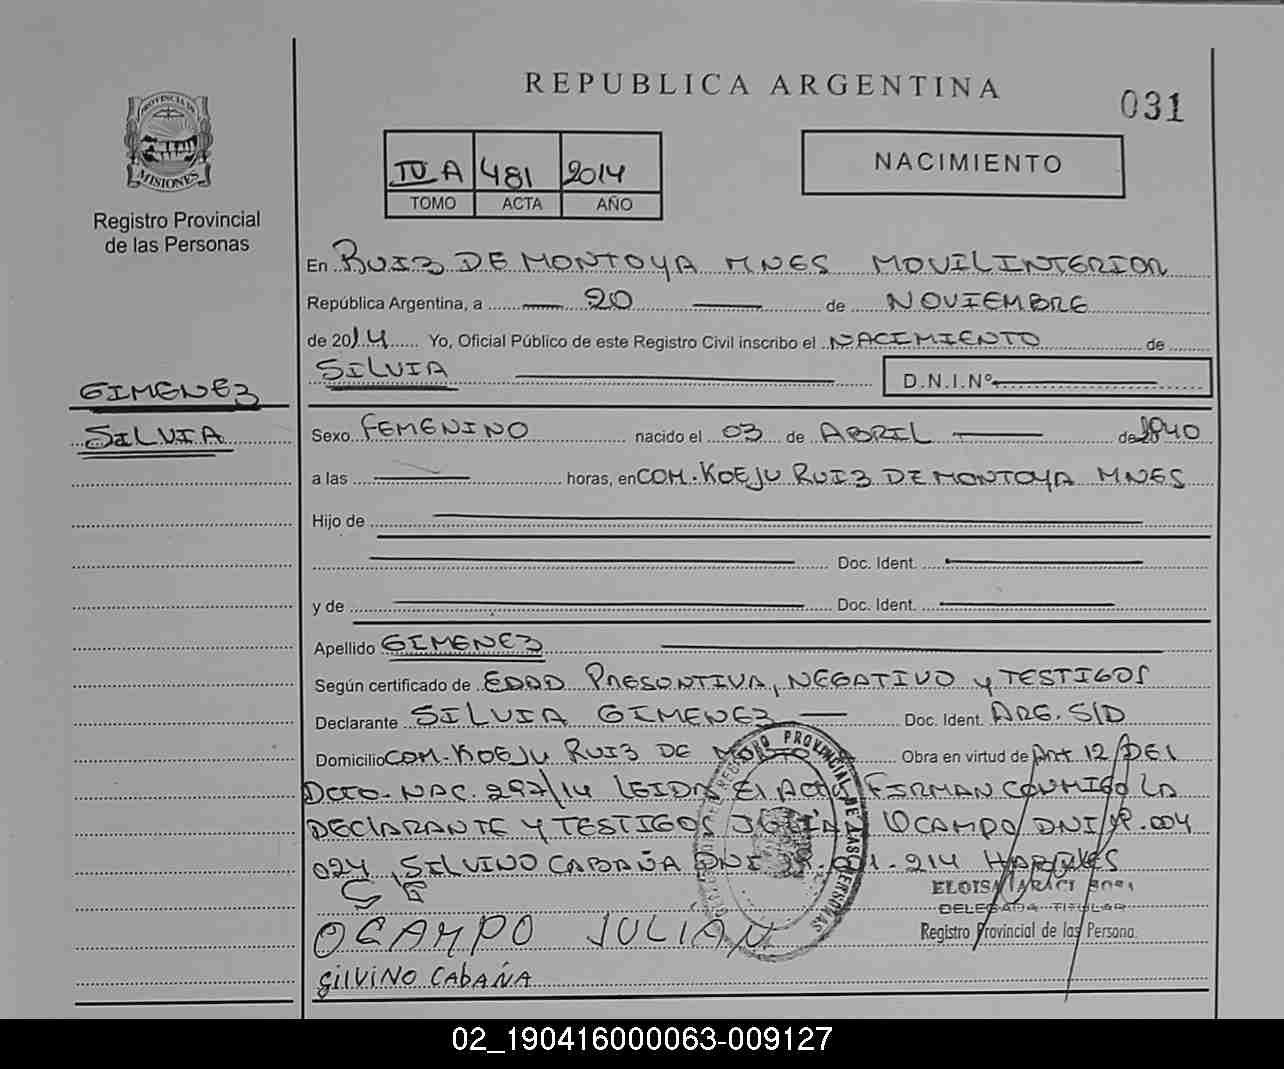 REPUBLICA ARGENTINA
031
PROVINCIA DE
MISIONES
Registro Provincial
de las Personas
IV A 481 2014
TOMO ACTA AÑO
NACIMIENTO
En RUIZ DE MONTOYA MNES MOVIL INTERIOR
República Argentina, a 20 de NOVIEMBRE
de 2014 Yo, Oficial Público de este Registro Civil inscribo el NACIMIENTO de
SILVIA
D.N.I.Nº
GIMENEZ
SILVIA
Sexo FEMENINO nacido el 03 de ABRIL de 1940
a las horas, en COM. KOEJU RUIZ DE MONTOYA MNES
Hijo de
Doc. Ident.
y de Doc. Ident.
Apellido GIMENEZ
Según certificado de EDAD PRESONTIVA, NEGATIVO y TESTIGOS
Declarante SILVIA GIMENEZ Doc. Ident. ARG. S/D
Domicilio COM. KOEJU RUIZ DE Obra en virtud de Art 12 DEL
DCTO. NAC. 297/14 LEIDA El ACTA FIRMAN CONMIGO LA
DECLARANTE Y TESTIGOS OCAMPO DNI 004
024, SILVINO CABAÑA DNI 214 HABILES
S G
ELOISA
DELEGADA TITULAR
Registro Provincial de las Persona
OCAMPO JULIÁN
SilVINO CAbAÑA
REGISTRO PROVINCIAL DE LAS PERSONAS
02_190416000063-009127